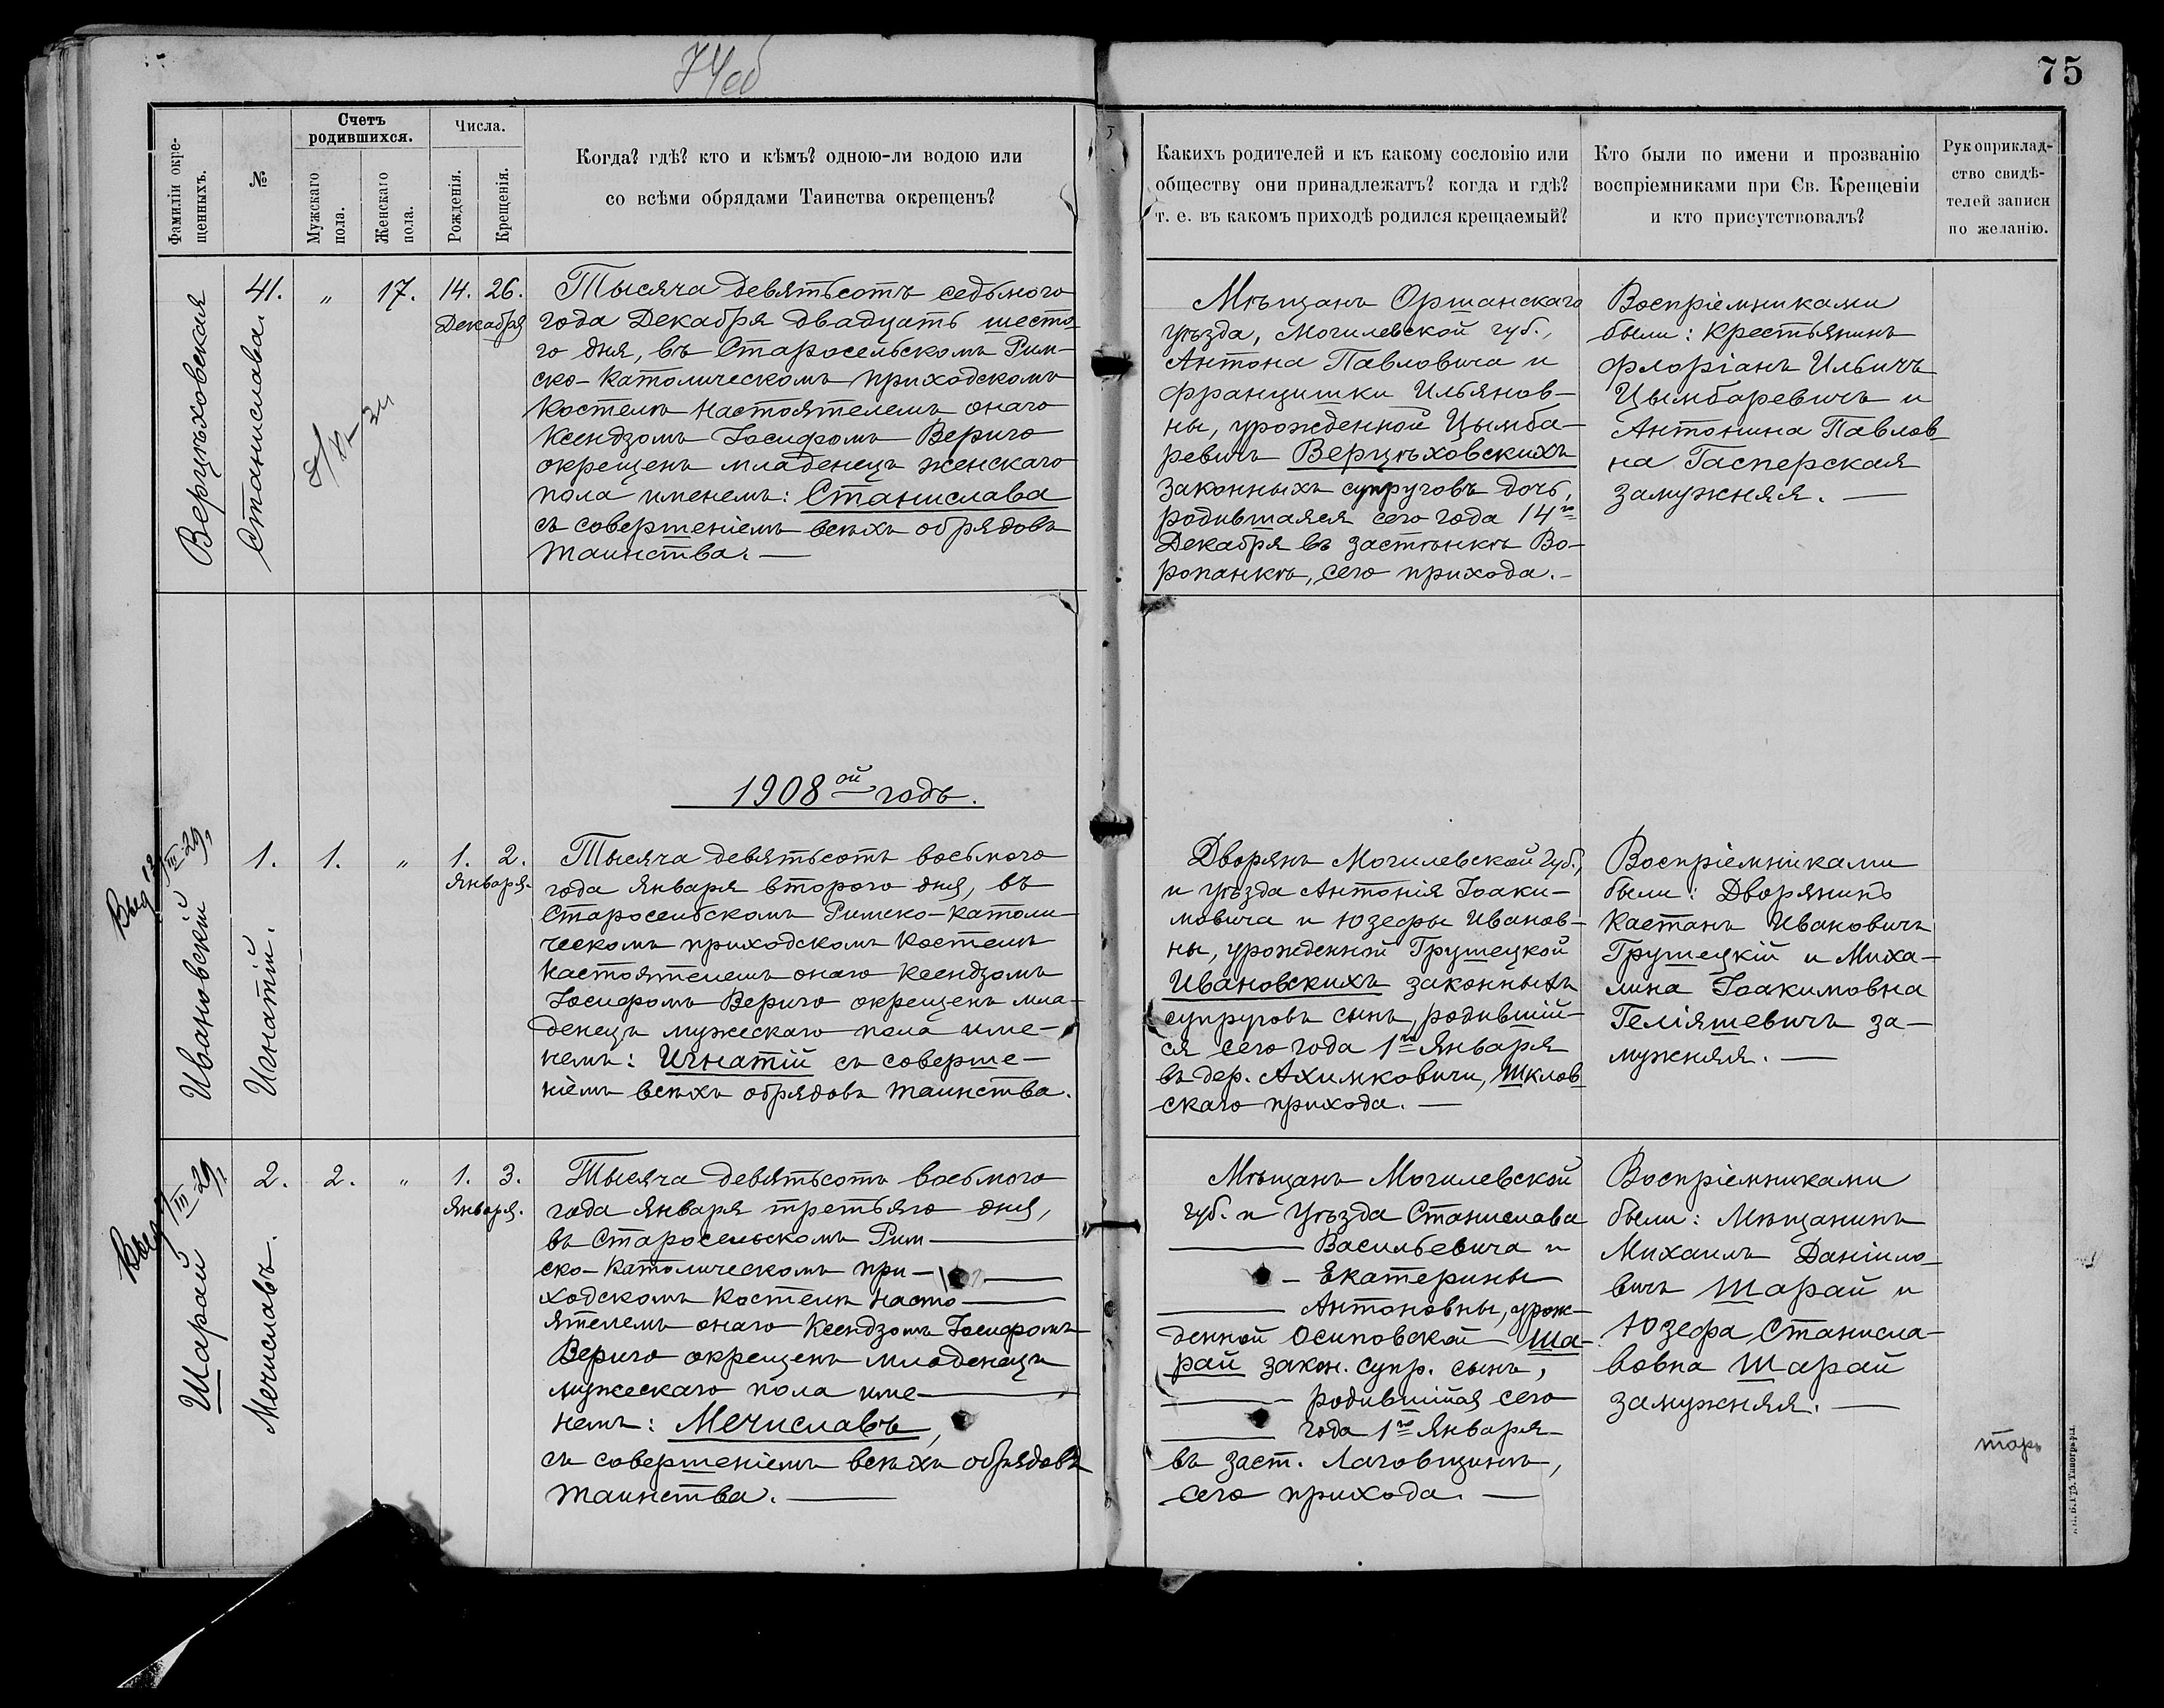 74об
75
Фамиліи окре-
щенныхъ.
№
Счетъ
родившихся.
Мужскаго
пола.
Женскаго
пола.
Числа.
Рожденія.
Крещенія.
Когда? гдѣ? кто и кѣмъ? одною-ли водою или
со всѣми обрядами Таинства окрещенъ?
Какихъ родителей и къ какому сословію или
обществу они принадлежатъ? когда и гдѣ?
т. е. въ какомъ приходѣ родился крещаемый?
Кто были по имени и прозванію
воспріемниками при Св. Крещеніи
и кто присутствовалъ?
Рукоприклад-
ство свидѣ-
телей записи
по желанію.
Верцѣховская
41.
Станислава.
„
17.
14. 26.
Декабря
Тысяча девятьсотъ седьмого
года Декабря двадцать шесто
го дня, въ Старосельскомъ Рим-
ско-Католическомъ приходскомъ
Костелѣ Настоятелемъ онаго
Ксендзомъ Іосифомъ Вериго
окрещенъ младенецъ женскаго
пола именемъ: Станислава
съ совершеніемъ всѣхъ обрядовъ
Таинства. —
Мѣщанъ Оршанскаго
уѣзда, Могилевской губ.,
Антона Павловича и
Францишки Ильянов-
ны, урожденной Цымба-
ревичъ Верцѣховскихъ
законныхъ супруговъ дочь,
родившаяся сего года 14го
Декабря въ застѣнкѣ Во-
ропанкѣ, сего прихода.-
Воспріемниками
были: Крестьянинъ
Флоріанъ Ильичъ
Цымбаревичъ и
Антонина Павлов
на Гасперская
замужняя. —
1908ой годъ.
Выд 12/III-29
Ивановскій
1.
Игнатій.
1.
„
1. 2.
Января.
Тысяча девятьсотъ восьмого
года Января второго дня, въ
Старосельскомъ Римско-Католи-
ческомъ приходскомъ Костелѣ
Настоятелемъ онаго Ксендзомъ
Іосифомъ Вериго окрещенъ мла-
денецъ мужескаго пола име-
немъ: Игнатій съ соверше-
ніемъ всѣхъ обрядовъ Таинства.
Дворянъ Могилевской губ.,
и уѣзда Антонія Іоаки-
мовича и Юзефы Иванов-
ны, урожденной Грушецкой
Ивановскихъ законныхъ
супруговъ сынъ, родившій-
ся сего года 1го Января
въ дер. Ахимковичи, Шклов
скаго прихода. —
Воспріемниками
были: Дворянинъ
Каетанъ Ивановичъ
Грушецкій и Миха-
лина Іоакимовна
Геліяшевичъ за-
мужняя. —
III-29
Шарай
2.
Мечиславъ.
2.
„
1. 3.
Января.
Тысяча девятьсотъ восьмого
года Января третьяго дня,
въ Старосельскомъ Рим—
ско-Католическомъ при-
ходскомъ Костелѣ Насто—
ятелемъ онаго Ксендзомъ Іосифомъ
Вериго окрещенъ младенецъ
мужескаго пола име—
немъ: Мечиславъ,
съ совершеніемъ всѣхъ обрядовъ
Таинства. —
Мѣщанъ Могилевской
губ. и уѣзда Станислава
— Васильевича и
— Екатерины
— Антоновны, урож-
денной Осиповской Ша-
рай закон. супр. сынъ,
— родившійся сего
— года 1го Января
въ заст. Лаговщинѣ,
сего прихода. —
Воспріемниками
были: Мѣщанинъ
Михаилъ Даніило-
вичъ Шарай и
Юзефа Станисла-
вовна Шарай
замужняя. —